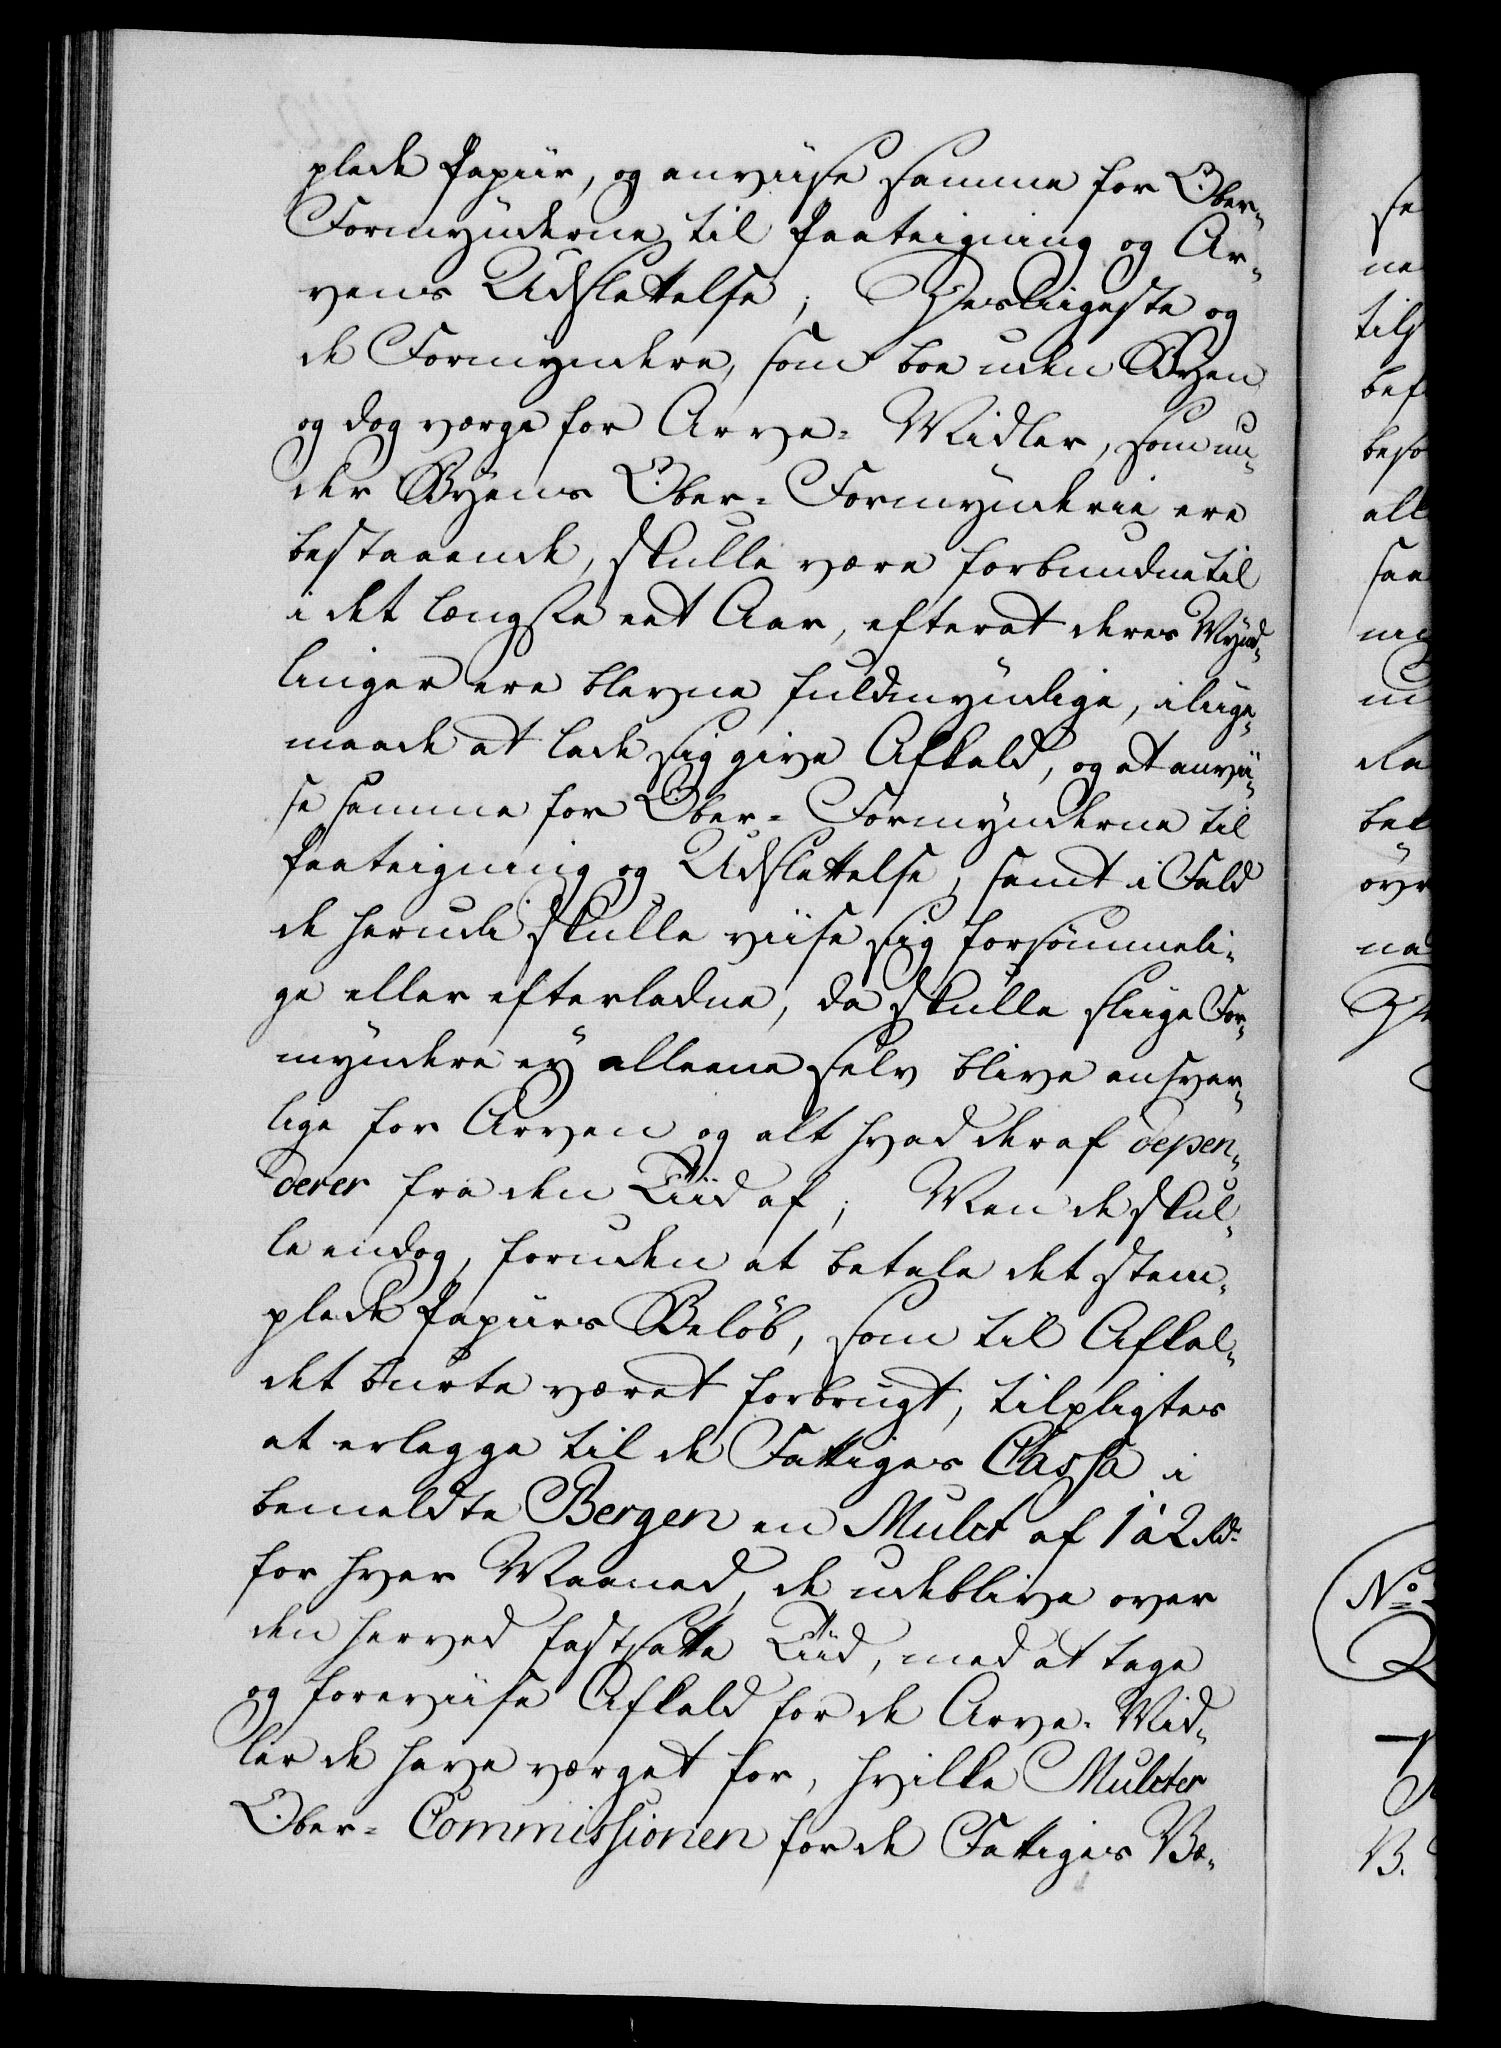 plede Papiir, og anviise samme for Ober-
Formynderne til Paateigning og Ar-
vens Udslettelse; Desliigeste og
de Formyndere, som boe uden Byen
og dog værge for Arve-Midler, som un-
der Byens Ober-Formynderie ere
bestaaende, skulle være forbundne til
i det længste eet Aar, efter at deres Mynd-
linger ere blevne fuldmyndige, i liige-
maade at lade sig give Afkald, og at anvii-
se samme for Ober-Formynderne til
Paateigning og Udslettelse, samt i Fald
de herudi skulle viise sig forsømmeli-
ge eller efterladne, da skulle sliige For-
myndere ey alleene selv blive ansvar-
lige for Arven og alt hvad deraf depen-
derer fra den Tiid af; Men de skul-
le endog, foruden at betale det stem-
plede Papiirs Beløb, som til Afkal-
det burte været forbrugt, tilpligtes
at erlegge til de Fattiges Cassa i
bemeldte Bergen en Mulct af 1 à 2 Rdr
for hver Maaned, de udeblive over
den herved fastsatte Tiid, med at tage
og foreviise Afkald for de Arve-Mid-
ler de have værget for, hvilke Mulcter
Ober-Commissionen for de Fattiges Væ-